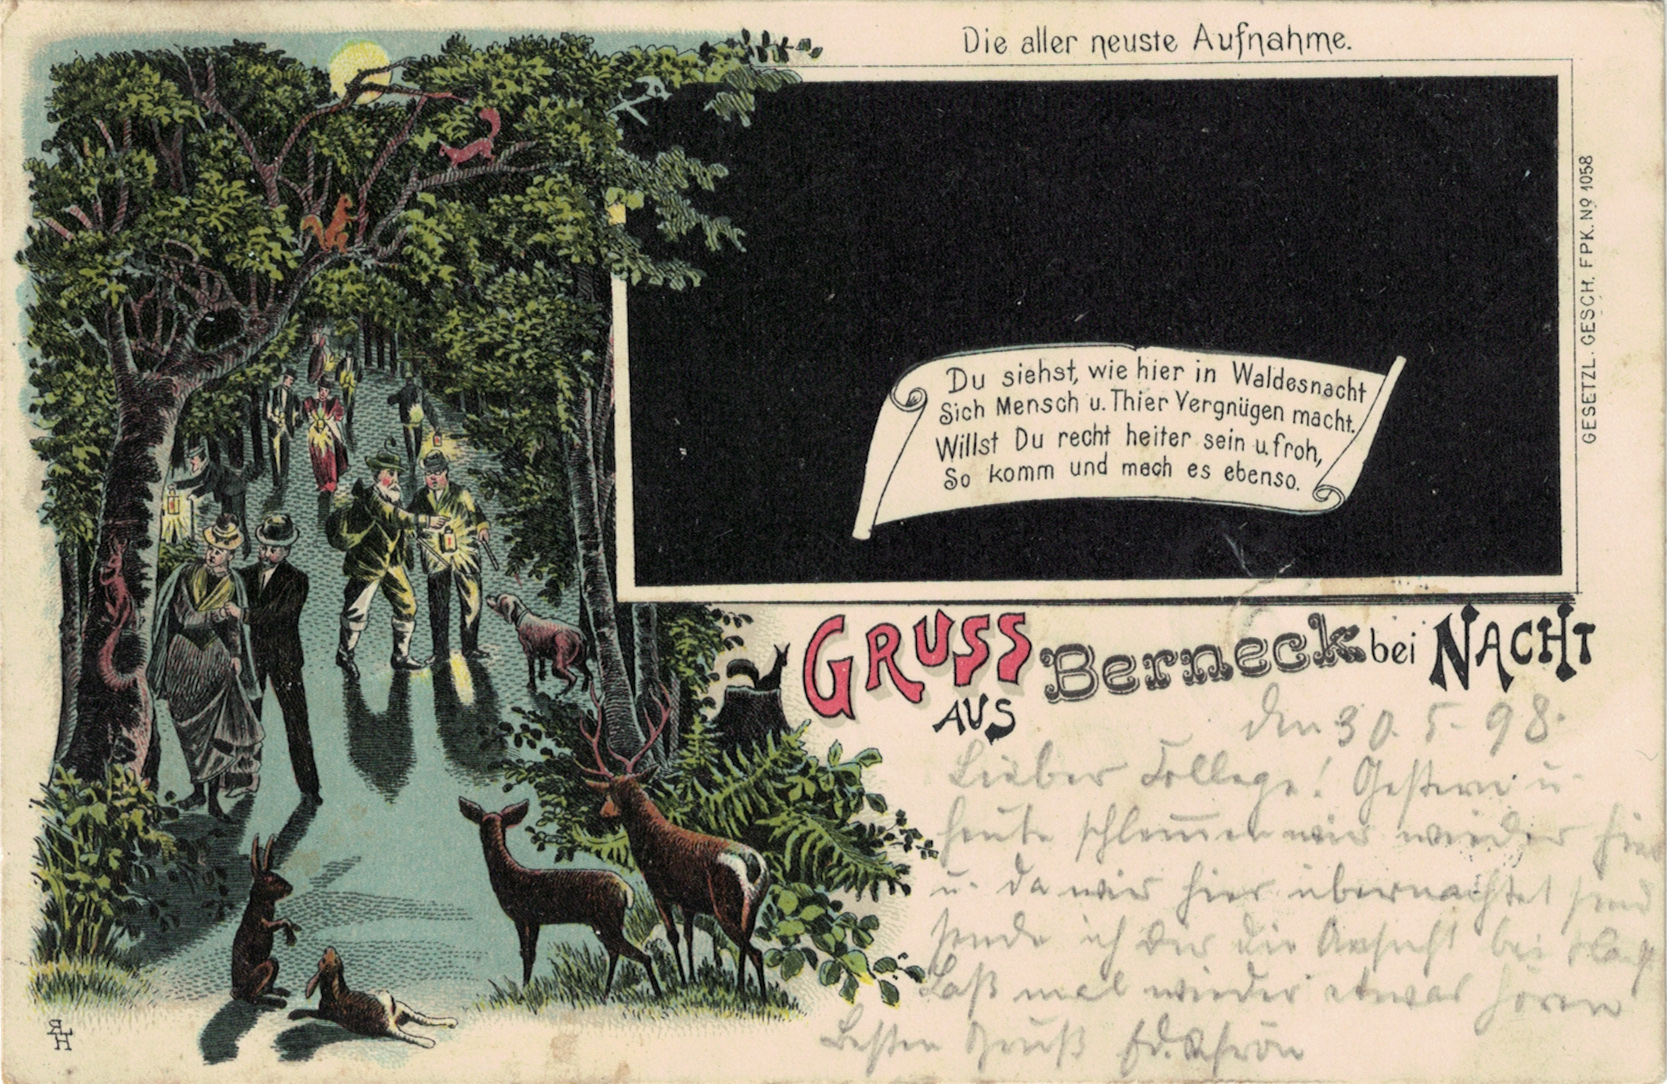 Die aller neuste Aufnahme.
Du siehst, wie hier in Waldesnacht
Sich Mensch u. Thier Vergnügen macht.
Willst Du recht heiter sein u. froh,
So komm und mach es ebenso.
GESETZL. GESCH. FPK. No 1058
GRUSS
AUS
Berneck bei NACHT
den 30. 5. 98.
Lieber College! Gestern u.
heute schlemmen wir wieder hier
u. da wir hier übernachtet sind
sende ich Dir die Ansicht bei Nacht
Laß mal wieder etwas hören
Besten Gruß Ed. Schrön